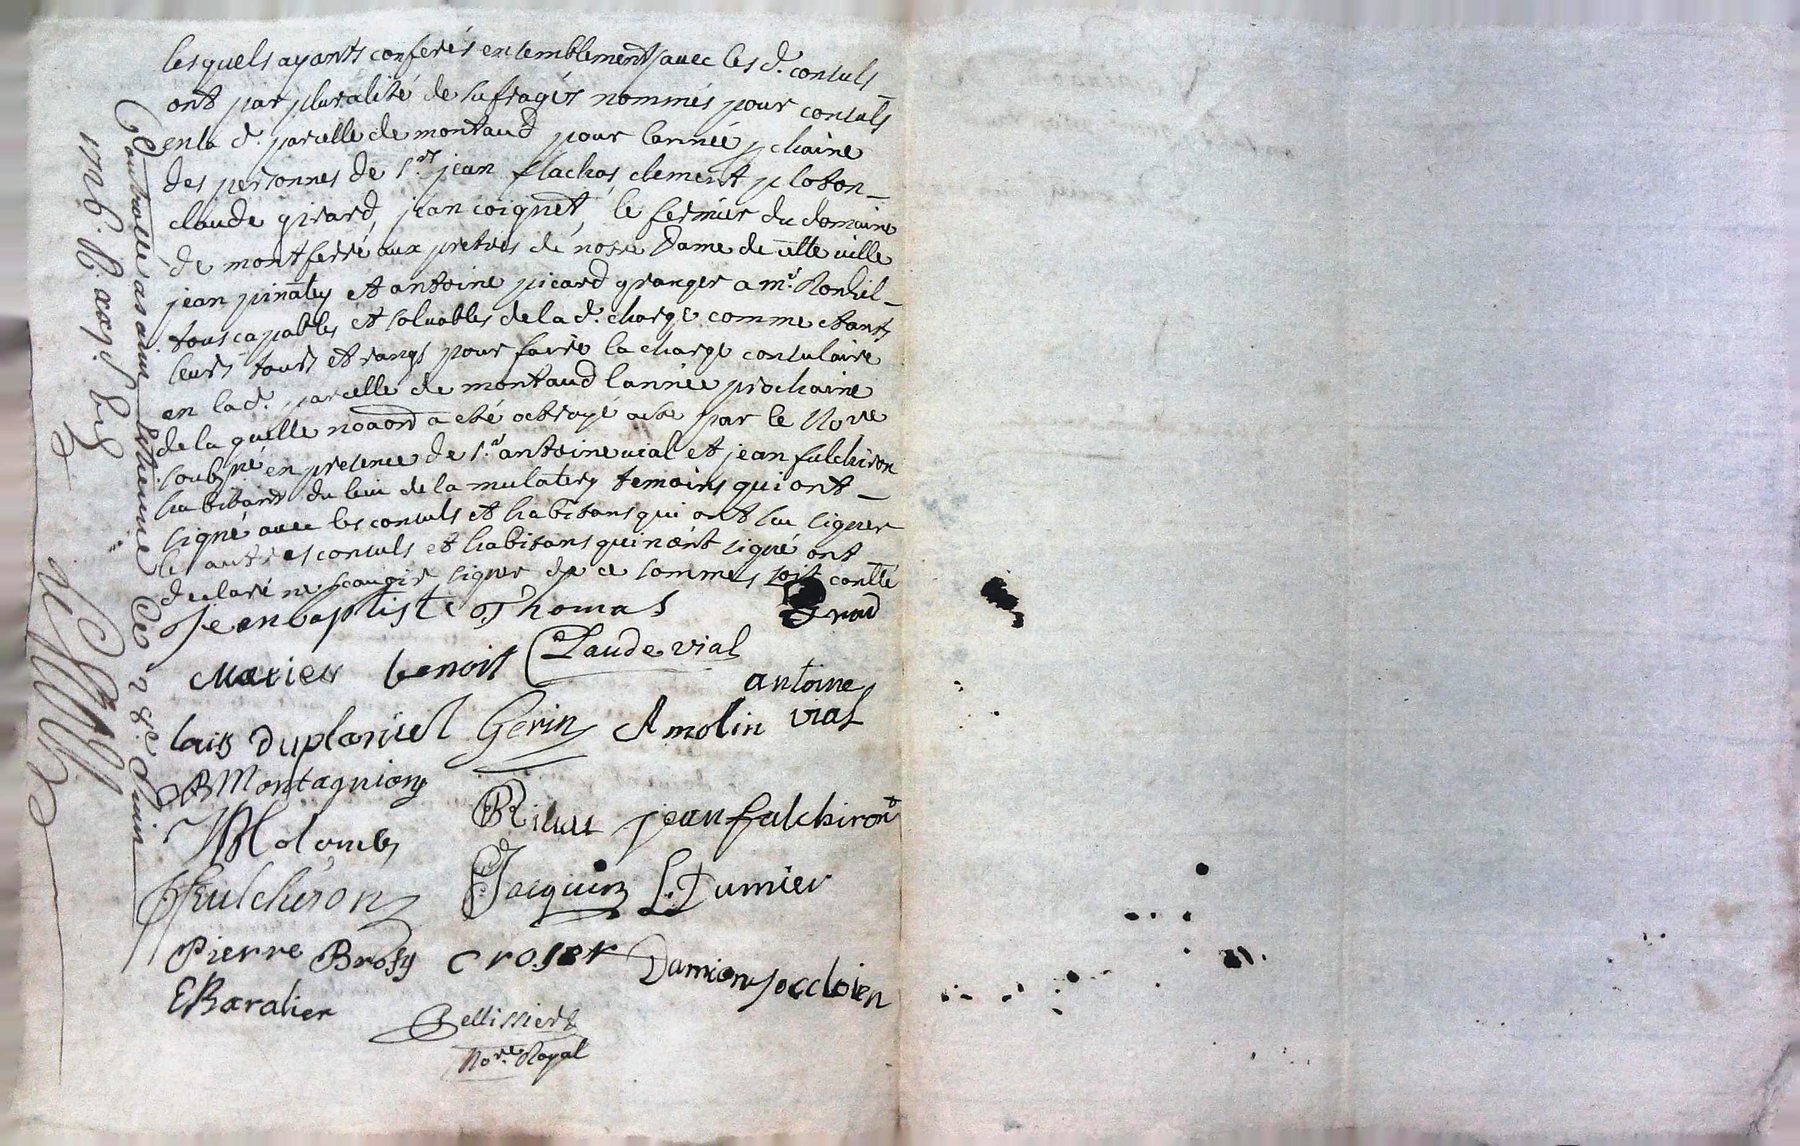 lesquels ayants conferés ensemblement avec les d. consuls
ont par pluralité de sufrages nommés pour consuls
en la d. parcelle de montaud pour lannée pchaine
des personnes de sr. jean flachas clement ploton
claude girard, jean coignet le fermier du domaine
de montferré aux pretres de nore Dame de cette ville
jean pinatez et antoine picard granger a mr.
tous capables et soluables de la d. charge comme etants
leurs tours et rangs pour faire la charge consulaire
en la d. parcelle de montaud lannée prochaine
de la quelle a eté octroyé acte par le Nore
soubsné en presence de sr. antoine vial et jean fulchiron
habitans du lieu de la mulatiere temoins qui ont
signé avec les consuls et habitans qui ont sceu signer
les autres consuls et habitans qui nont signé ont
declaré ne scauoir signer de ce sommes soit contlé
Jean baptiste Thomas
Marier benoist Claude vial
antoine
vial
Duplaniel Gerin A molin
Montagnion
jean fulchiron
Colomb
Fulchiron Jacquin L. Dumier
Pierre Brosy croset Damien
E Baralier
Pellissier
Nore. Royal
Controllé a st etienne le 28e Juin
1726